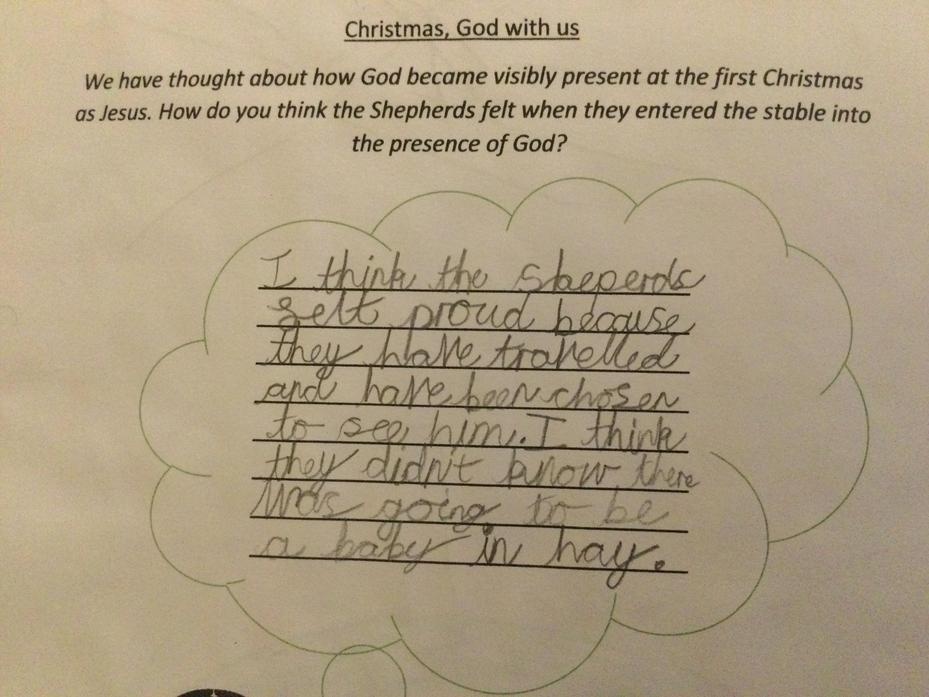 Christmas, God with us
We have thought about how God became visibly present at the first Christmas
as Jesus. How do you think the Shepherds felt when they entered the stable into
the presence of God?
I think the sheperds
felt proud because
they have travelled
and have been chosen
to see him. I think
they didn't know there
was going to be
a baby in hay.